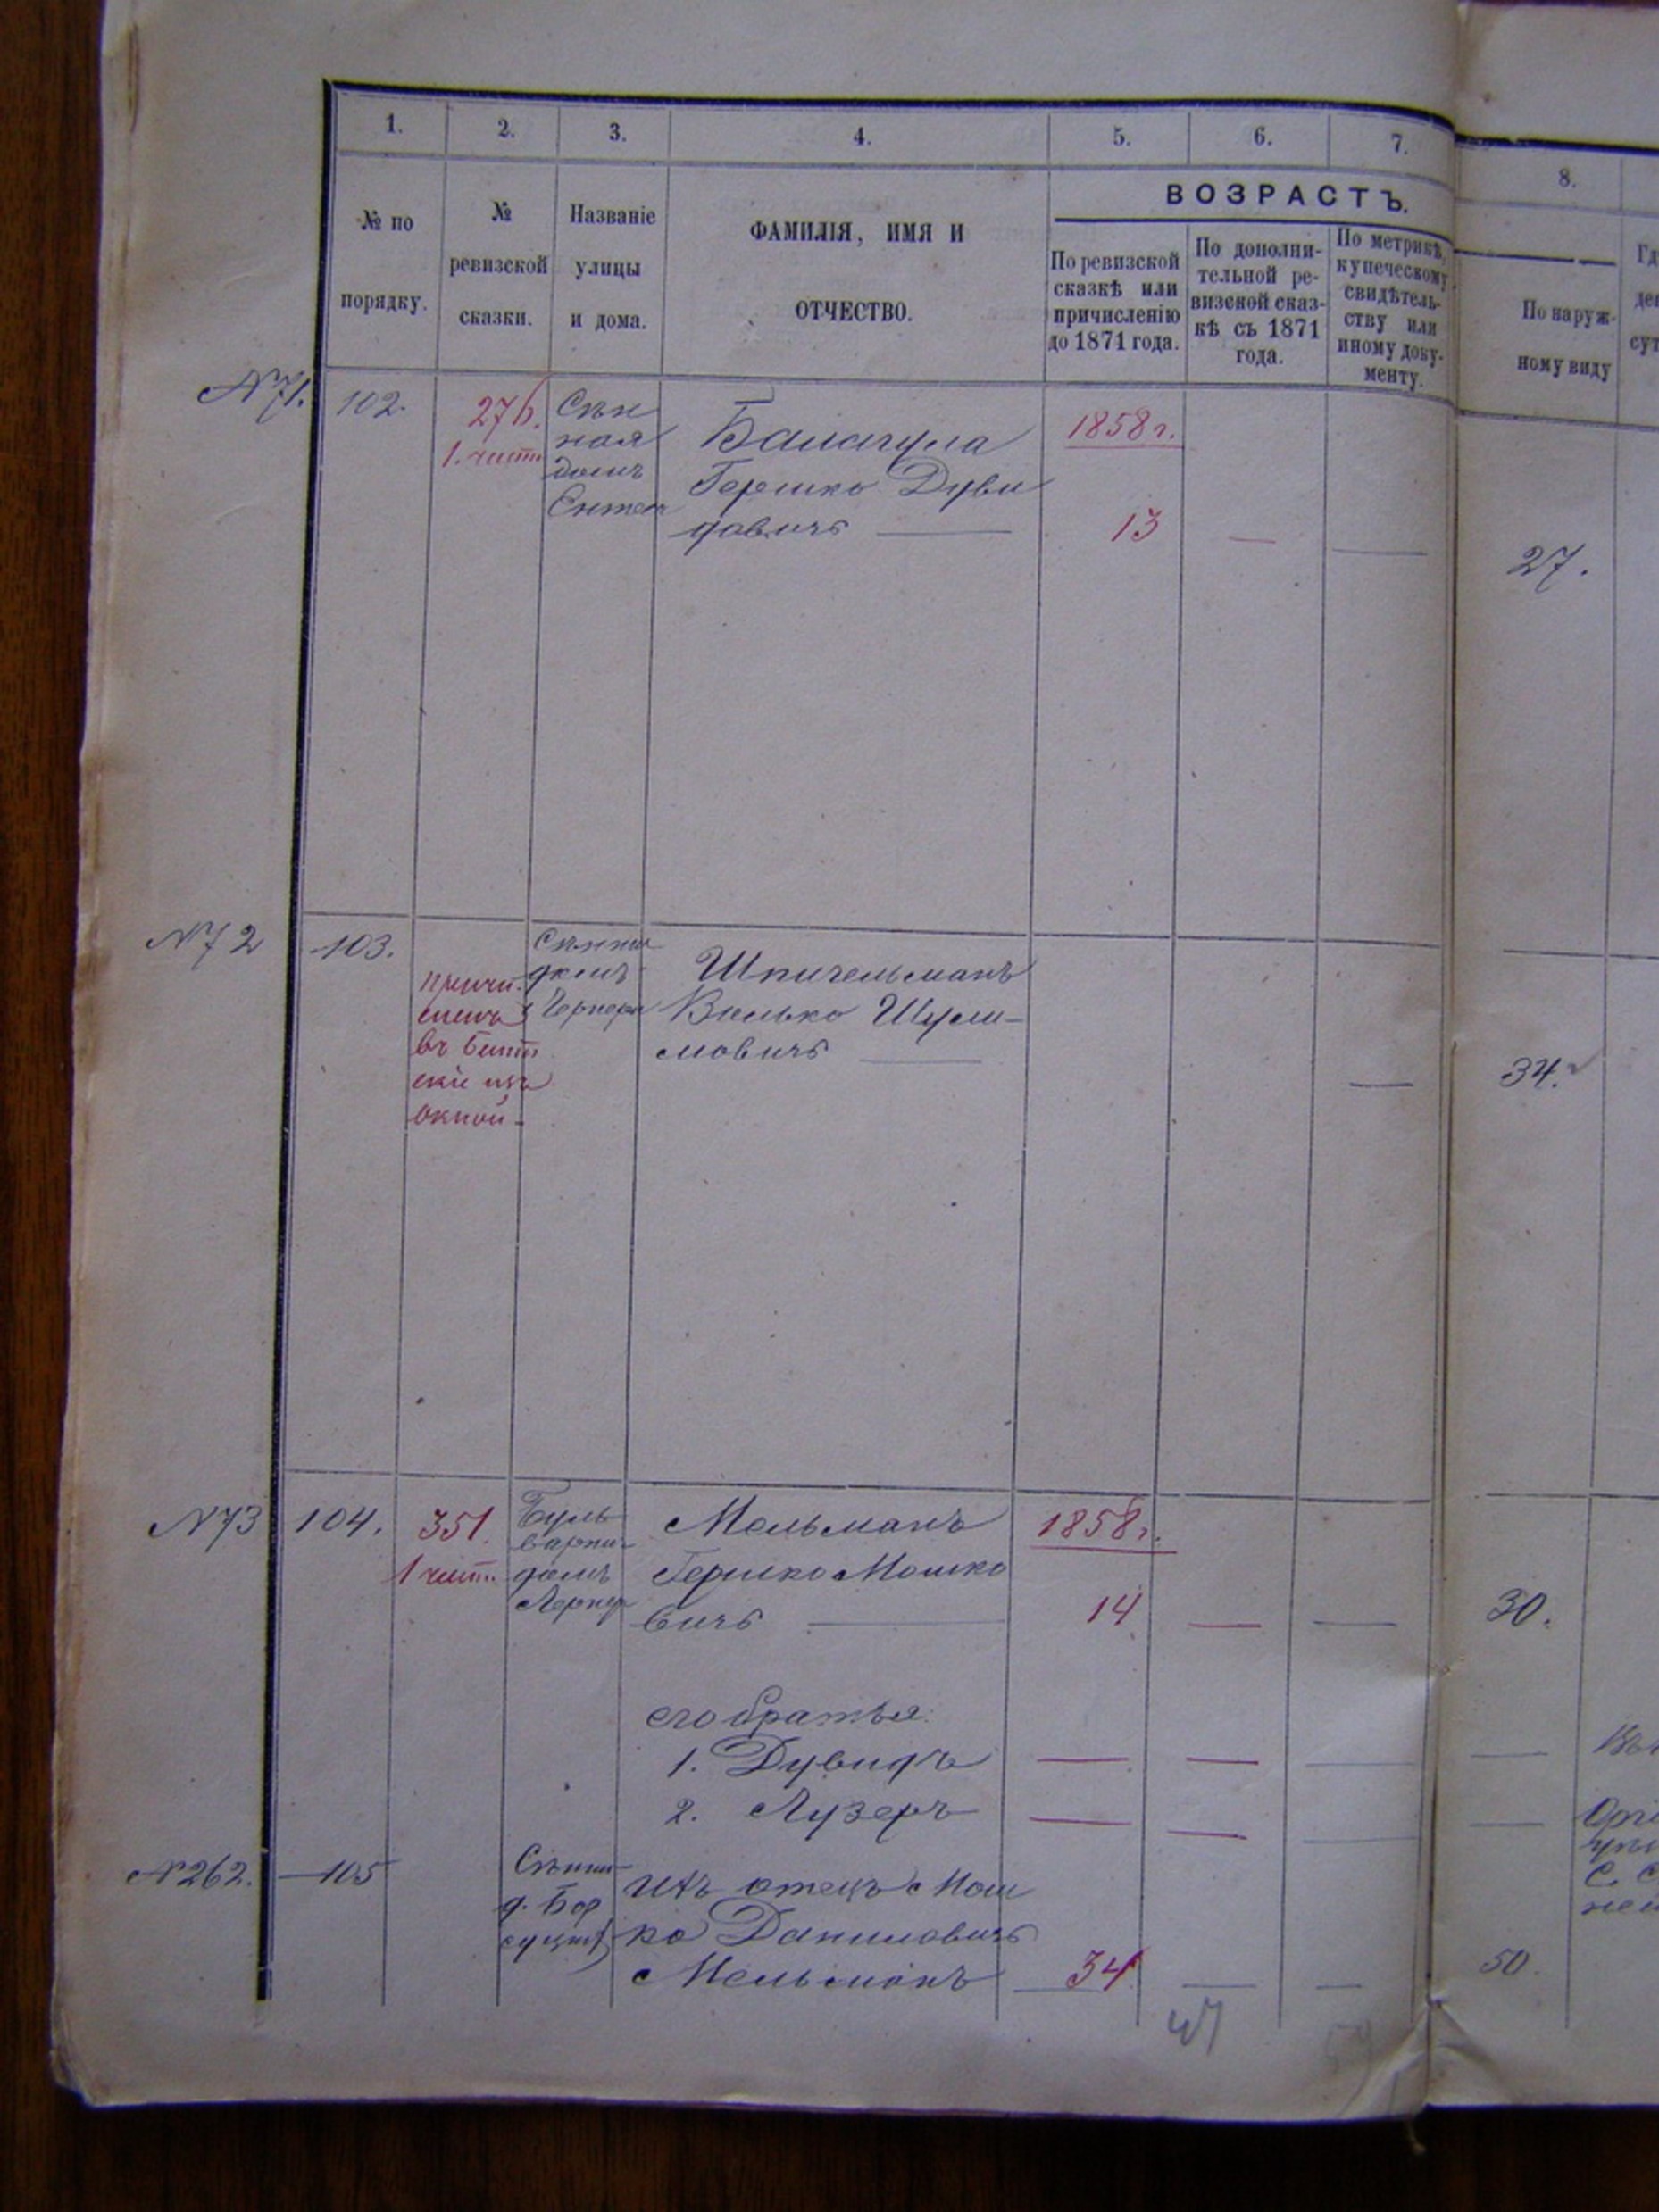 1.
2.
3.
4.
5.
6.
7.
8.
№ по
порядку.
№
ревизской
сказки.
Названіе
улицы
и дома.
ФАМИЛІЯ, ИМЯ И
ОТЧЕСТВО.
ВОЗРАСТЪ.
По ревизской
сказкѣ или
причисленію
до 1871 года.
По дополни-
тельной ре-
визской сказ-
кѣ съ 1871
года.
По метрикѣ,
купеческому
свидѣтель-
ству или
иному доку-
менту.
По наруж-
ному виду
N 71.
102.
276.
Сѣн
ная
домъ
Балагула
Гершко Дуви
довичъ
1858 г.
13
27.
N 72
103.
причи-
сленъ
въ
скіе изъ
окной
домъ
Шпигельманъ
Вилько Шули-
мовичъ
34.
N 73
104.
351.
1 части
Буль
варная
домъ
Мельманъ
Гершко Мошко
вичъ
1858 г.
14
30.
его братья
1. Дувидъ
2. Лузеръ
N 262.
105
ихъ отецъ Мош
ко Даниловичъ
Мельманъ
34
50
47